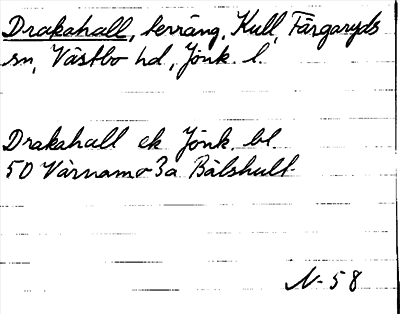 Drakahall, terräng, Kull, Färgaryds
sn, Västbo hd, Jönk. l.
Drakahall ek Jönk. bl
50 Värnamo 3a Bälshult
N-58